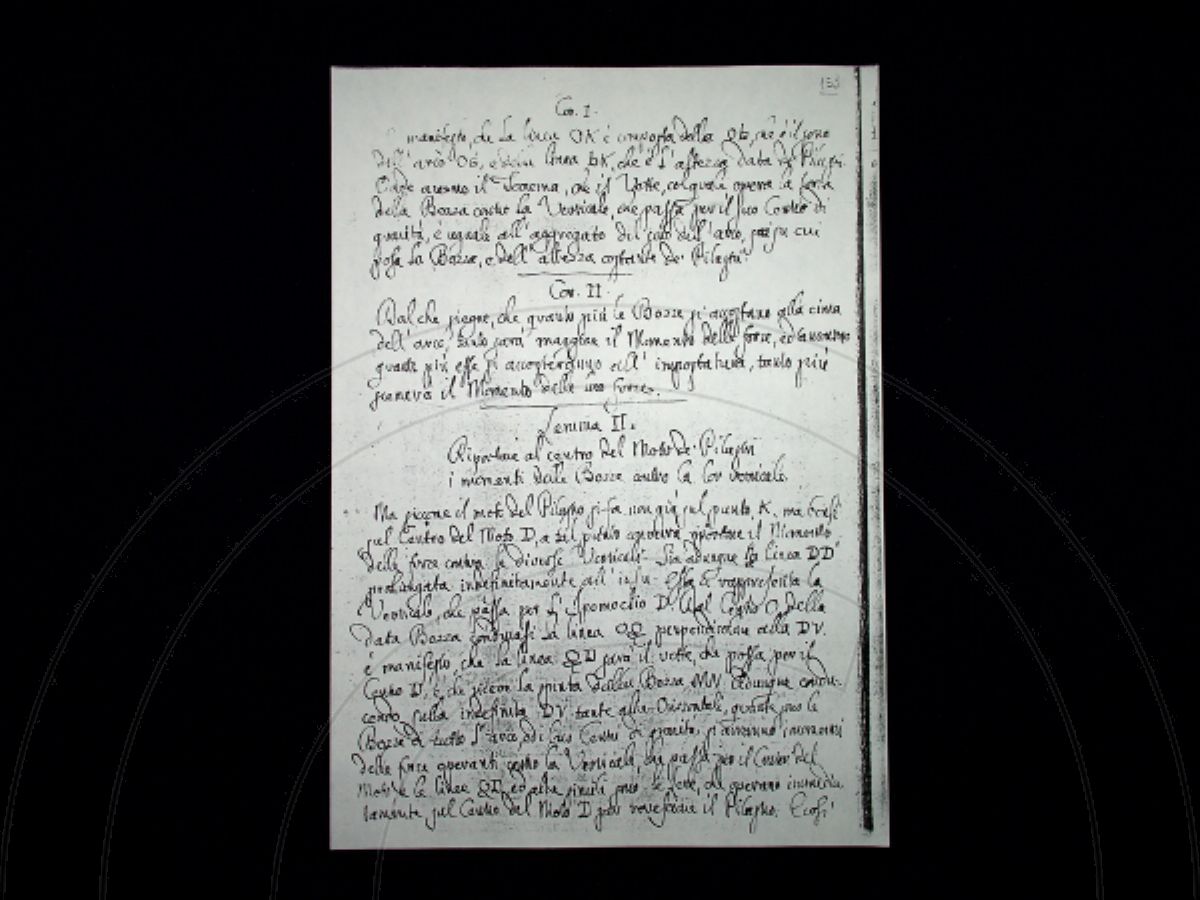 Cor. I.
manifesto, che la linea OK è composta della Qb, che è il seno
dell'arco OG, e della linea bK, che è l'altezza data de' Pilastri.
che il Vette, col quale opera la forza
della Bozza contro la Verticale, che passa per il suo Centro di
gravità, è uguale all'aggregato del seno dell'arco, su cui
posa la Bozza, e dell'altezza costante de' Pilastri.
Cor. II.
Dal che siegue, che quanto più le Bozze si accostano alla cima
dell'arco, tanto sarà maggiore il Momento delle forze, ed
quanto più esse si accosteranno all'impostatura, tanto più
scemerà il Momento delle loro forze.
Lemma II.
Riportare al centro del Moto de' Pilastri
i momenti delle Bozze contro la lor verticale.
Ma siccome il moto del Pilastro si fa non già sul punto K, ma bensì
sul Centro del Moto D, a tal punto converrà riportare il Momento
delle forze contro le diverse Verticali. Sia adunque la linea DD
prolungata indefinitamente all'insù. Essa rappresenta la
Verticale, che passa per l'Ipomoclio D. Dal Centro O della
data Bozza conducasi la linea OQ perpendicolare alla DV.
è manifesto, che la linea QD sarà il vette, che passa per il
Centro D, e che riceve la spinta della Bozza MN. Adunque condu-
cendo sulla indefinita DV tante alle Orizontali, quante sono le
Bozze di tutto l'arco, ed i loro Centri di gravità, si avranno i momenti
delle forze operanti contro la Verticale, che passa per il Centro del
Moto le linee QD, ed altre simili le forze, che operano immedia-
tamente sul Centro del Moto D per rovesciare il Pilastro. E così